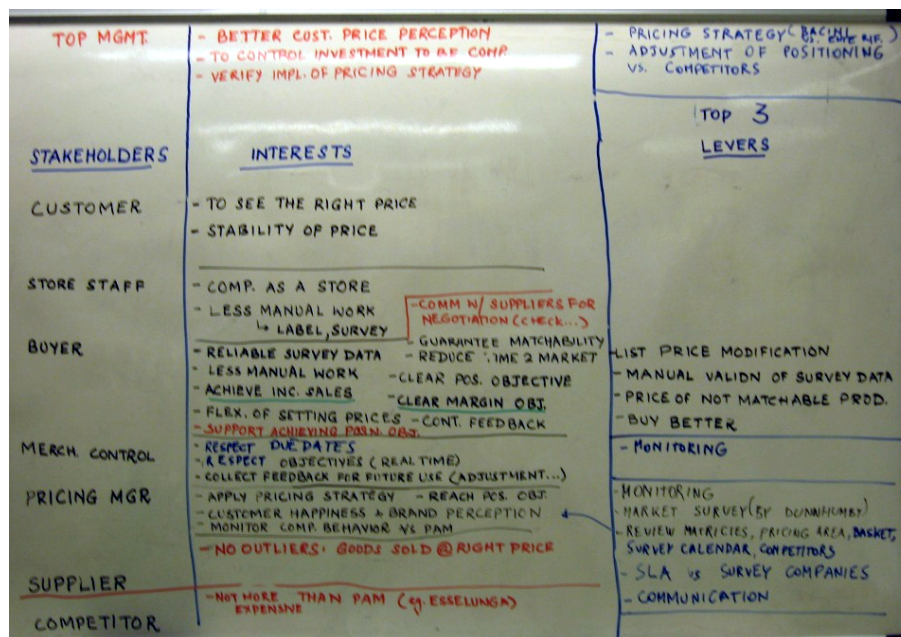 TOP MGMT.
- BETTER COST. PRICE PERCEPTION
- TO CONTROL INVESTMENT TO BE COMP.
- VERIFY IMPL. OF PRICING STRATEGY
- PRICING STRATEGY (BACINI VS. RIF.)
- ADJUSTMENT OF POSITIONING
VS. COMPETITORS
TOP 3
LEVERS
STAKEHOLDERS
INTERESTS
CUSTOMER
- TO SEE THE RIGHT PRICE
- STABILITY OF PRICE
STORE STAFF
- COMP. AS A STORE
- LESS MANUAL WORK
↳ LABEL, SURVEY
- COMM W/ SUPPLIERS FOR
NEGOTIATION (CHECK...)
BUYER
- RELIABLE SURVEY DATA
- LESS MANUAL WORK
- ACHIEVE INC. SALES
- FLEX. OF SETTING PRICES
- SUPPORT ACHIEVING POSN. OBJ.
- GUARANTEE MATCHABILITY
- REDUCE TIME 2 MARKET
- CLEAR POS. OBJECTIVE
- CLEAR MARGIN OBJ.
- CONT. FEEDBACK
- LIST PRICE MODIFICATION
- MANUAL VALIDN OF SURVEY DATA
- PRICE OF NOT MATCHABLE PROD.
- BUY BETTER
MERCH. CONTROL
- RESPECT DUE DATES
- RESPECT OBJECTIVES (REAL TIME)
- COLLECT FEEDBACK FOR FUTURE USE (ADJUSTMENT...)
- MONITORING
PRICING MGR
- APPLY PRICING STRATEGY - REACH POS. OBJ.
- CUSTOMER HAPPINESS & BRAND PERCEPTION
- MONITOR COMP. BEHAVIOR VS PAM
- NO OUTLIERS. GOODS SOLD @ RIGHT PRICE
- MONITORING
- MARKET SURVEY (BY DUNNHUMBY)
- REVIEW MATRICIES, PRICING AREA, BASKET,
SURVEY CALENDAR, COMPETITORS
- SLA VS SURVEY COMPANIES
- COMMUNICATION
SUPPLIER
- NOT MORE THAN PAM (eg. ESSELUNGA)
EXPENSIVE
COMPETITOR